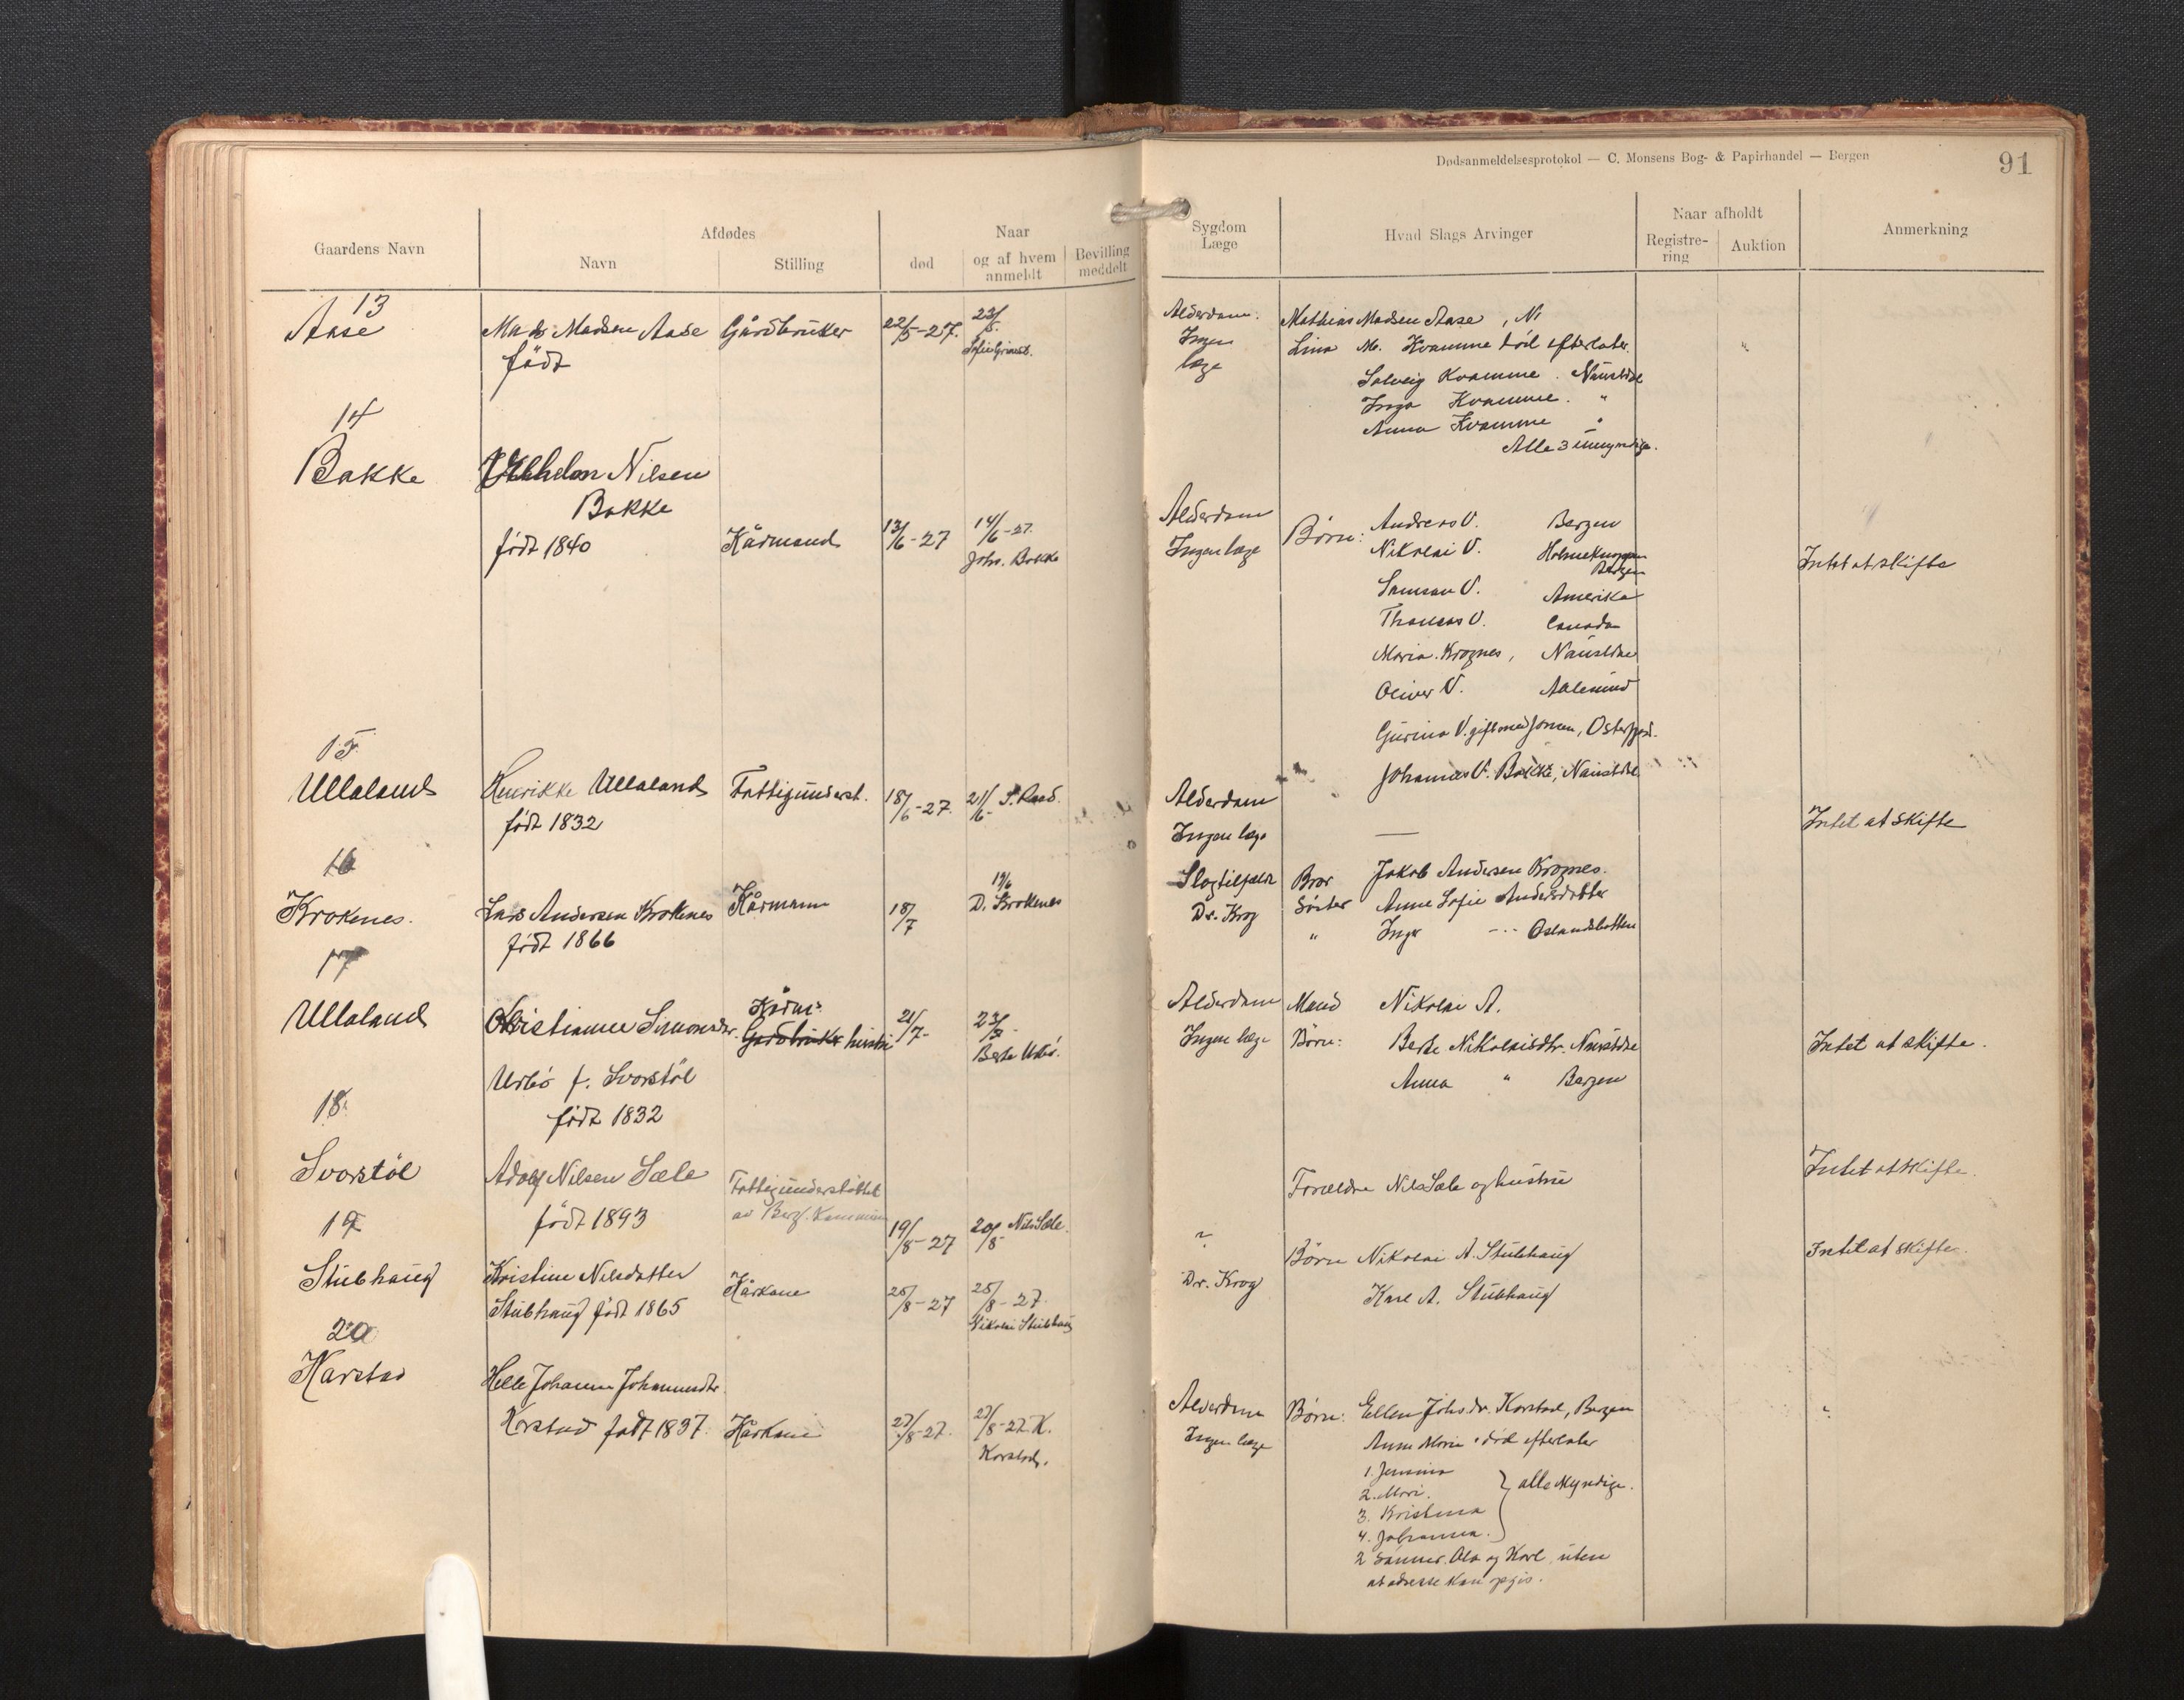 Dødsanmeldelsesprotokol — C. Monsens Bog- & Papirhandel — Bergen
91
Gaardens Navn
Afdødes
Navn
Stilling
Naar
død
og af hvem anmeldt
Bevilling meddelt
Sygdom
Læge
Hvad Slags Arvinger
Naar afholdt
Registre-
ring
Auktion
Anmerkning
13
Aase
Mads Madsen Aase
født
Gårdbruker
22/5-27.
23/5.
Alderdom.
Ingen
læge
Mathias Madsen Aase,
Lina M. Kvamme død efterlater.
Solveig Kvamme. Naustdal
Inga Kvamme. "
Anna Kvamme "
Alle 3 umyndige.
14
Bakke
Vilhelm Nilsen
Bakke
født 1840
Kårmand
13/6-27
14/6-27.
Johs. Bakke
Alderdom
Ingen læge
Børn:
Andreas V. Bergen
Nikolai V. Holmeknappen
Bergen
Samson V. Amerika
Thomas V. Canada
Maria Krognes, Naustdal
Oliver V. Aalesund
Gurina V. gift med Jonsen, Osterfjord.
Johannes V. Bakke, Naustdal
Intet at skifte
15
Ullaland
Henrikke Ullaland
født 1832
Fattigunderst.
18/6-27.
21/6-
Alderdom
Ingen læge
—
Intet at skifte
16
Krokenes.
Lars Andersen Krokenes
født 1866
Kårmann
18/7
19/6
D. Krokenes
Slagtilfælde
Dr. Krog
Bror Jakob Andersen Krognes.
Søster Anne Sofie Andersdatter
" Inger -"- Oslandsbotten
17
Ullaland
Kristianne Simonsdtr.
Urbø f. Svorstøl
født 1832
Kårm.
Gardbruker hustru
21/7-
23/7-
Berte Urbø.
Alderdom
Ingen læge
Mand Nikolai A.
Børn: Berte Nikolaisdtr. Naustdal
Anna " Bergen
Intet at skifte.
18
Svorstøl
Adolf Nilsen Sæle
født 1893
Fattigunderstøttet
av Berg. Kommune
19/8-27
20/8 Nils Sæle.
?
Forældre Nils Sæle og hustru
Intet at skifte.
19
Stubhaug
Kristine Nilsdatter
Stubhaug født 1865
Kårkone
25/8-27
25/8-27.
Nikolai Stubhaug
Dr. Krog
Børn Nikolai A. Stubhaug
Karl A. Stubhaug
Intet at skifte.
20
Karstad
Helle Johanne Johannesdtr.
Karstad født 1837.
Kårkone
27/8-27.
27/8-27. K.
Karstad.
Alderdom
Ingen læge
Børn: Ellen Johs.dr. Karstad, Bergen
Anne Marie død efterlater
1. Jensina
2. Mari.
3. Kristina
4. Johanna.
alle Myndige.
2 Sønner. Ola og Karl, uten
at adresse kan opgis.